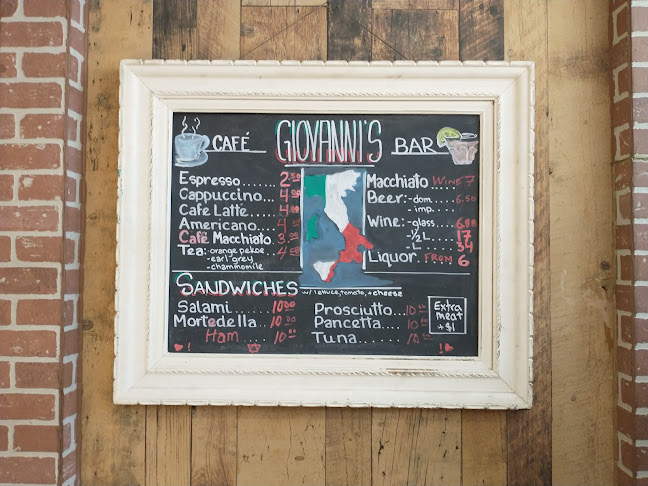 CAFÉ GIOVANNI'S BAR
Espresso....... 2.50
Cappuccino....
Cafe Latte....
Americano....
Café Macchiato.
Tea:-orange pekoe.
-earl grey
-chammomile
Macchiato WINE 7
Beer:-dom.... 6.50
-imp....
Wine:-glass...
-½ L... 17
-L... 34
Liquor. FROM 6
SANDWICHES w/lettuce, tomato, + cheese
Salami..... 10.00
Mortedella.. 10.00
Ham .... 10.00
Prosciutto.. 10.00
Pancetta.... 10.00
Tuna...... 10.00
Extra
meat
+$1